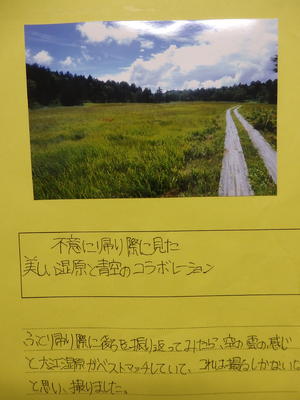 不意に帰り際に見た
美しい湿原と青空のコラボレーション
ふと帰り際に後ろを振り返ってみたら、空の雲の感じ
と大江湿原がベストマッチしていて、これは撮るしかないな
と思い、撮りました。